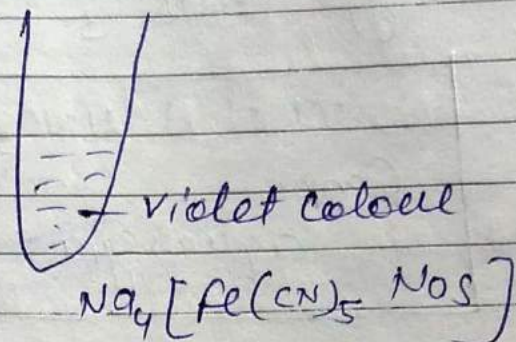 violet colour
Na₄[Fe(CN)₅ NOS]